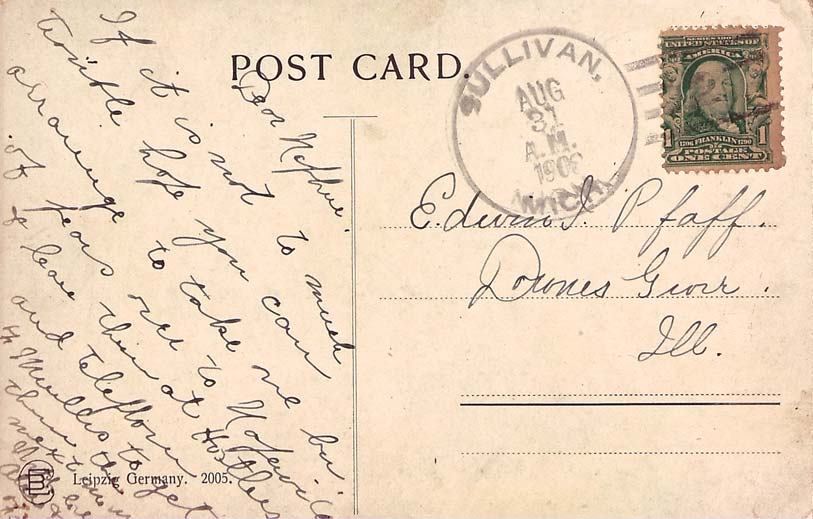 POST CARD.
SULLIVAN,
AUG
31
A.M.
190
MICH.
SERIES 1902
UNITED STATES OF
AMERICA
1706 FRANKLIN 1790
1
POSTAGE
ONE CENT
1
Edwin I. Pfaff.
Downes Gwor.
Ill.
Dear Nephew.
If it is not to much
trouble hope you can
arrainge to take me
of pears over to
& leave them at
and telefhon
to get
them
next
Leipzig Germany. 2005.